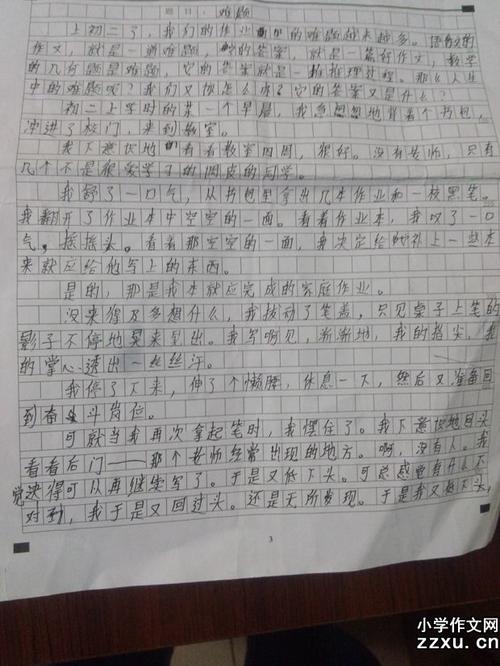 题目：难题
上初二了，我们的作业里的难题越来越多。语文的
作文，就是一道难题，的答案，就是一篇好作文，数学
的几何题是难题，它的答案就是一推理过程。那么人生
中的难题呢？我们又该怎么办？它的答案又是什么？
初二上学时的某一个早晨，我急匆匆地背着个书包，
冲进了校门，来到教室。
我下意识地看看教室四周，很好。没有老师，只有
几个不是很爱学习的调皮的同学。
我舒了一口气，从书包里拿出几本作业和一枝黑笔。
我翻开了作业本中空空的一面。看着作业本，我叹了一口
气，摇摇头。看着那空空的一面，我决定给补上一些本
来就应给他写上的东西。
是的，那是我本就应完成的家庭作业。
没来得及多想什么，我拔动了笔盖，只见桌子上笔的
影子不停地晃来晃出。我写啊见，渐渐地，我的指尖，我
的掌心透出一丝丝汗。
我停了下来，伸了个懒腰，休息一下，然后又准备回
到奋斗岗位。
可就当我再次拿起笔时，我摆住了。我下意识地回头
看看后门——那个老师经常出现的地方。啊，没有人。我
觉决得可以再继续写了。于是又低下头。可总感觉有什么不
对到，我于是又回过头。还是无所发现。于是我又低下头，
3
小学作文网
zzxu.cn